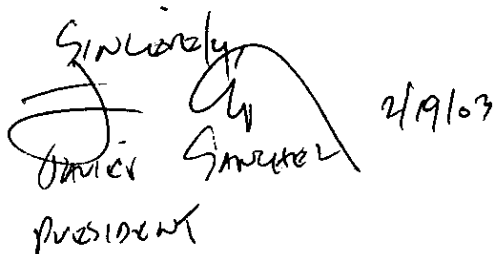 Sincerely
2/19/03
Javier Sanchez
President